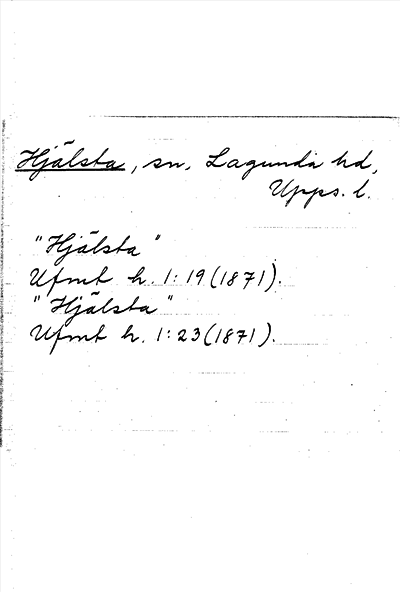 Hjälsta, sn, Lagunda hd,
Upps. l.
"Hjälsta"
Ufmt h. 1:19 (1871).
"Hjälsta"
Ufmt h. 1:23 (1871).